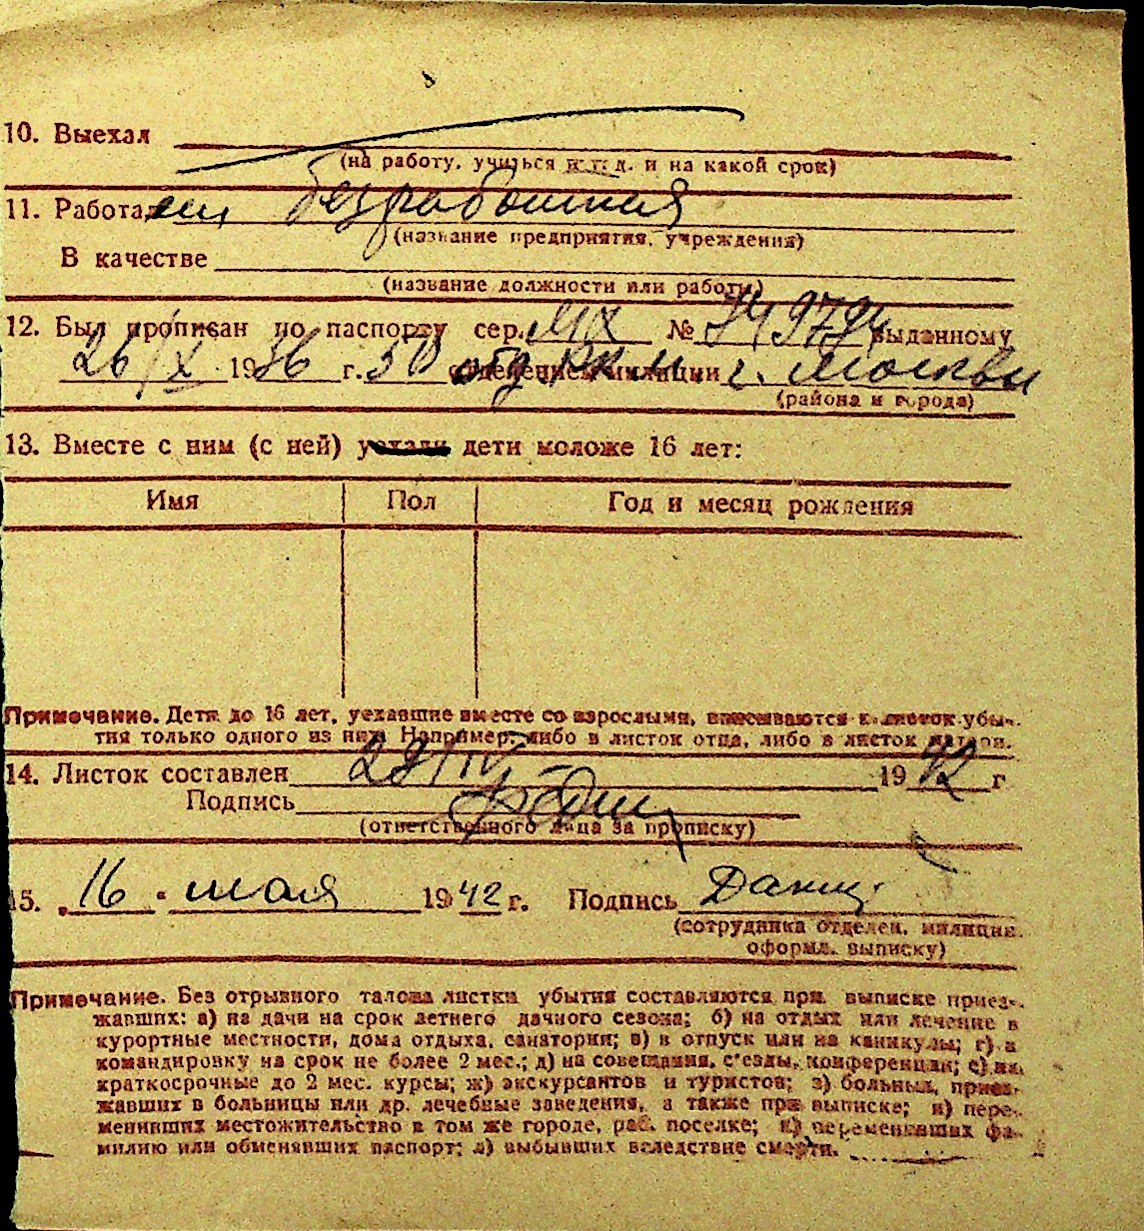 10. Выехал
(на работу, учиться и т. д. и на какой срок)
11. Работал безработная
(название предприятия, учреждения)
В качестве
(название должности или работы)
12. Был прописан по паспорту сер. МХ № выданному
26/X 1936 г. 50 отд. РКМ отделением милиции г. Москвы
(района и города)
13. Вместе с ним (с ней) уехали дети моложе 16 лет:
Имя Пол Год и месяц рождения
Примечание. Дети до 16 лет, уехавшие вместе со взрослыми, вписываются в листок убы-
тия только одного из них. Например: либо в листок отца, либо в листок матери.
14. Листок составлен 29/IV 1942 г
Подпись
(ответственного лица за прописку)
15. „16" мая 1942 г. Подпись
(сотрудника отделен. милиции,
оформл. выписку)
Примечание. Без отрывного талона листки убытия составляются при выписке приез-
жавших: а) на дачи на срок летнего дачного сезона; б) на отдых или лечение в
курортные местности, дома отдыха, санатории; в) в отпуск или на каникулы; г) в
командировку на срок не более 2 мес.; д) на совещания, с'езды, конференции; е) на
краткосрочные до 2 мес. курсы; ж) экскурсантов и туристов; з) больных, приез-
жавших в больницы или др. лечебные заведения, а также при выписке; и) пере-
менивших местожительство в том же городе, раб. поселке; к) переменивших фа-
милию или обменявших паспорт; л) выбывших вследствие смерти.